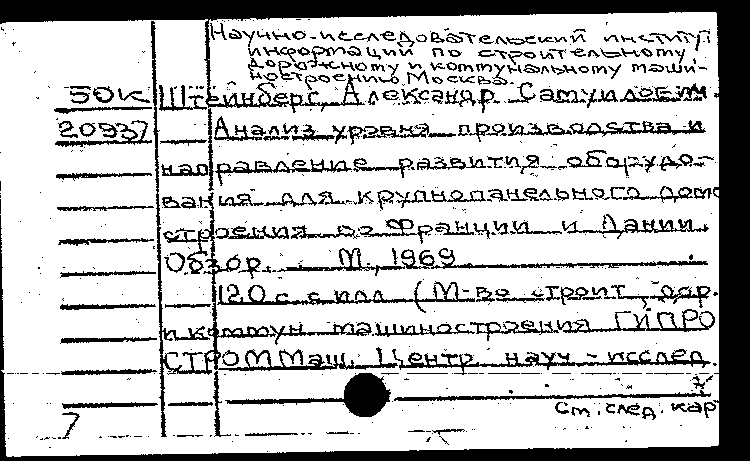 Научно-исследовательский институт
информации по строительному,
дорожному и коммунальному маши-
ностроению, Москва.
50К Штейнберг, Александр Самуилович.
20937 Анализ уровня производства и
направление развития оборудо-
вания для крупнопанельного домо
строения во Франции и Дании.
Обзор. М., 1969.
120 с. с илл. (М-во строит., дор.
и коммун. машиностроения. ГИПРО
СТРОММаш. Центр. науч-исслед.
См. след. кар
7